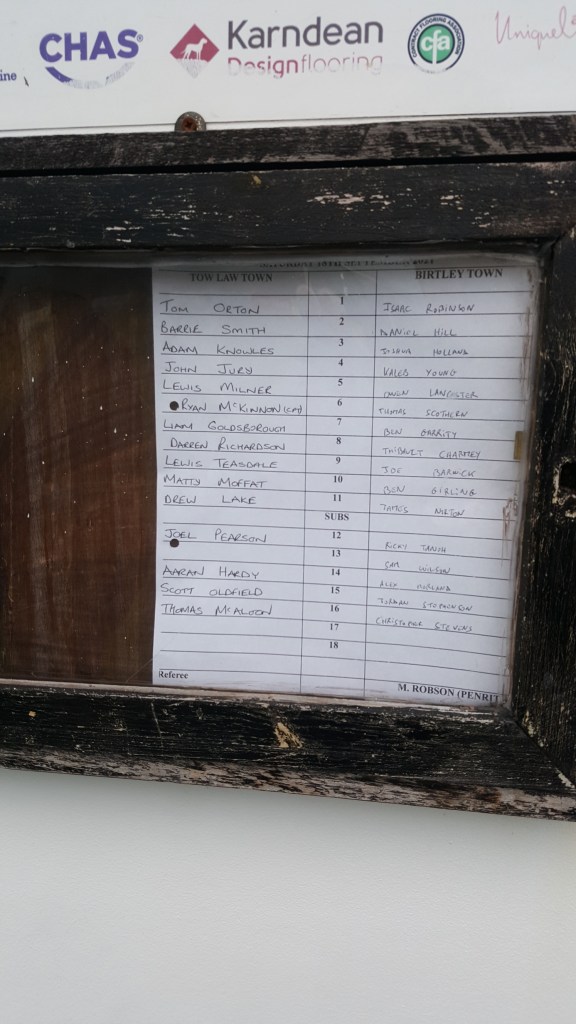 ine CHAS® Karndean Designflooring CONTRACT FLOORING ASSOCIATION cfa Unique
SATURDAY 18TH SEPTEMBER 2021
TOW LAW TOWN BIRTLEY TOWN
TOM ORTON 1 ISAAC ROBINSON
BARRIE SMITH 2 DANIEL HILL
ADAM KNOWLES 3 JOSHUA HOLLAND
JOHN JURY 4 KALEB YOUNG
LEWIS MILNER 5 OWEN LANCASTER
RYAN McKINNON (CPT) 6 THOMAS SCOTHERN
LIAM GOLDSBOROUGH 7 BEN GARRITY
DARREN RICHARDSON 8 THIBAULT CHARTLEY
LEWIS TEASDALE 9 JOE BARWICK
MATTY MOFFAT 10 BEN GIRLING
DREW LAKE 11 JAMES NIXTON
SUBS
JOEL PEARSON 12 RICKY TANSH
13 SAM WILSON
AARAN HARDY 14 ALEX MORLAND
SCOTT OLDFIELD 15 JORDAN STEPHENSON
THOMAS McALOON 16 CHRISTOPHER STEVENS
17
18
Referee M. ROBSON (PENRI